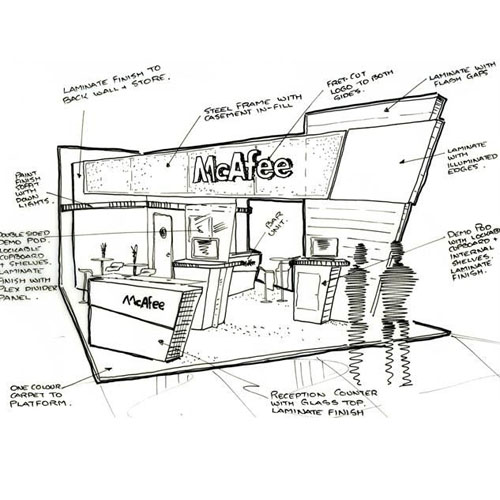 LAMINATE FINISH TO
BACK WALL + STORE.
STEEL FRAME WITH
CASEMENT IN-FILL
FRET-CUT
LOGO TO BOTH
SIDES.
LAMINATE WITH
FLASH GAPS
McAfee
LAMINATE
WITH
ILLUMINATED
EDGES.
PAINT
FINISH
SOFFIT
WITH
DOWN
LIGHTS.
BAR
UNIT.
DOUBLE SIDED
DEMO POD.
LOCKABLE
CUPBOARD
+ SHELVES.
LAMINATE
FINISH WITH
PLEX DIVIDER
PANEL.
DEMO POD
WITH LOCKABLE
CUPBOARD +
INTERNAL
SHELVES.
LAMINATE
FINISH.
McAfee
ONE COLOUR
CARPET TO
PLATFORM.
RECEPTION COUNTER
WITH GLASS TOP.
LAMINATE FINISH